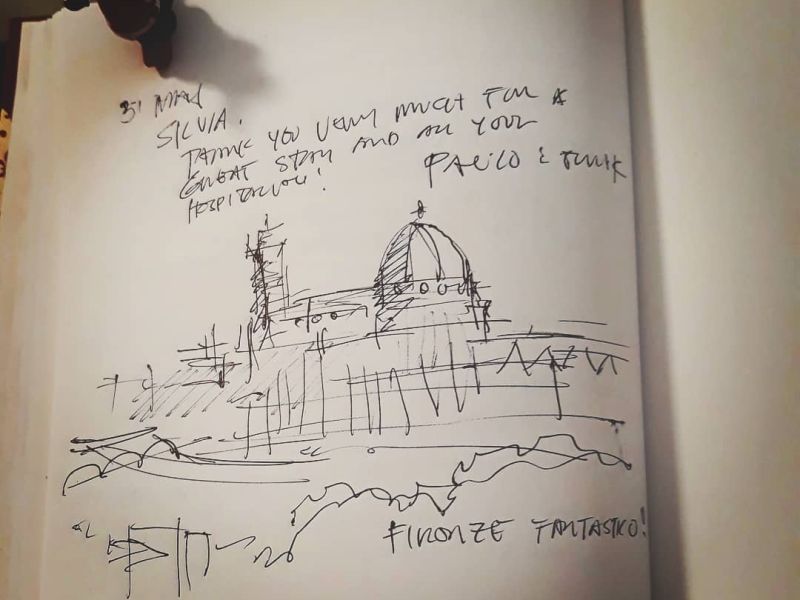 31 MAY
SILVIA.
THANK YOU VERY MUCH FOR A
GREAT STAY AND ALL YOUR
HOSPITALITY!
FIRENZE FANTASTICO!